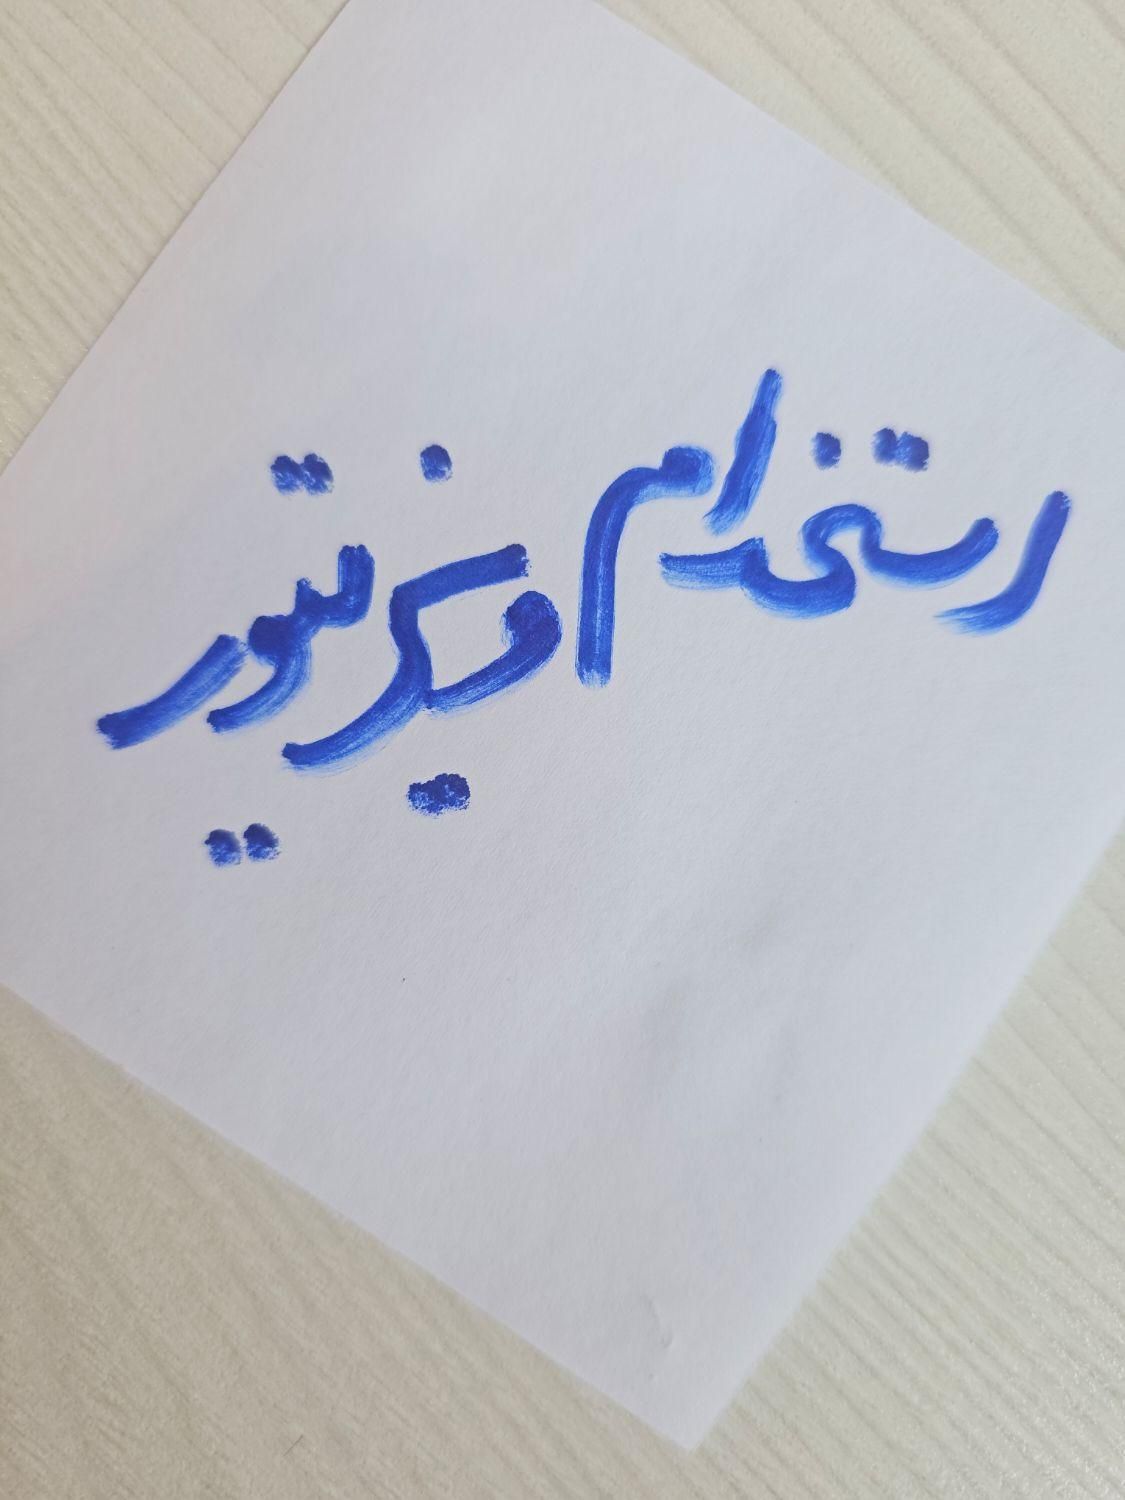 استخدام ویزیتور